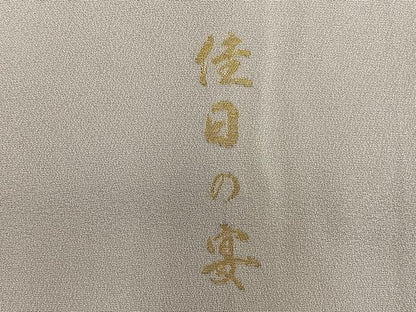 佳日の宴